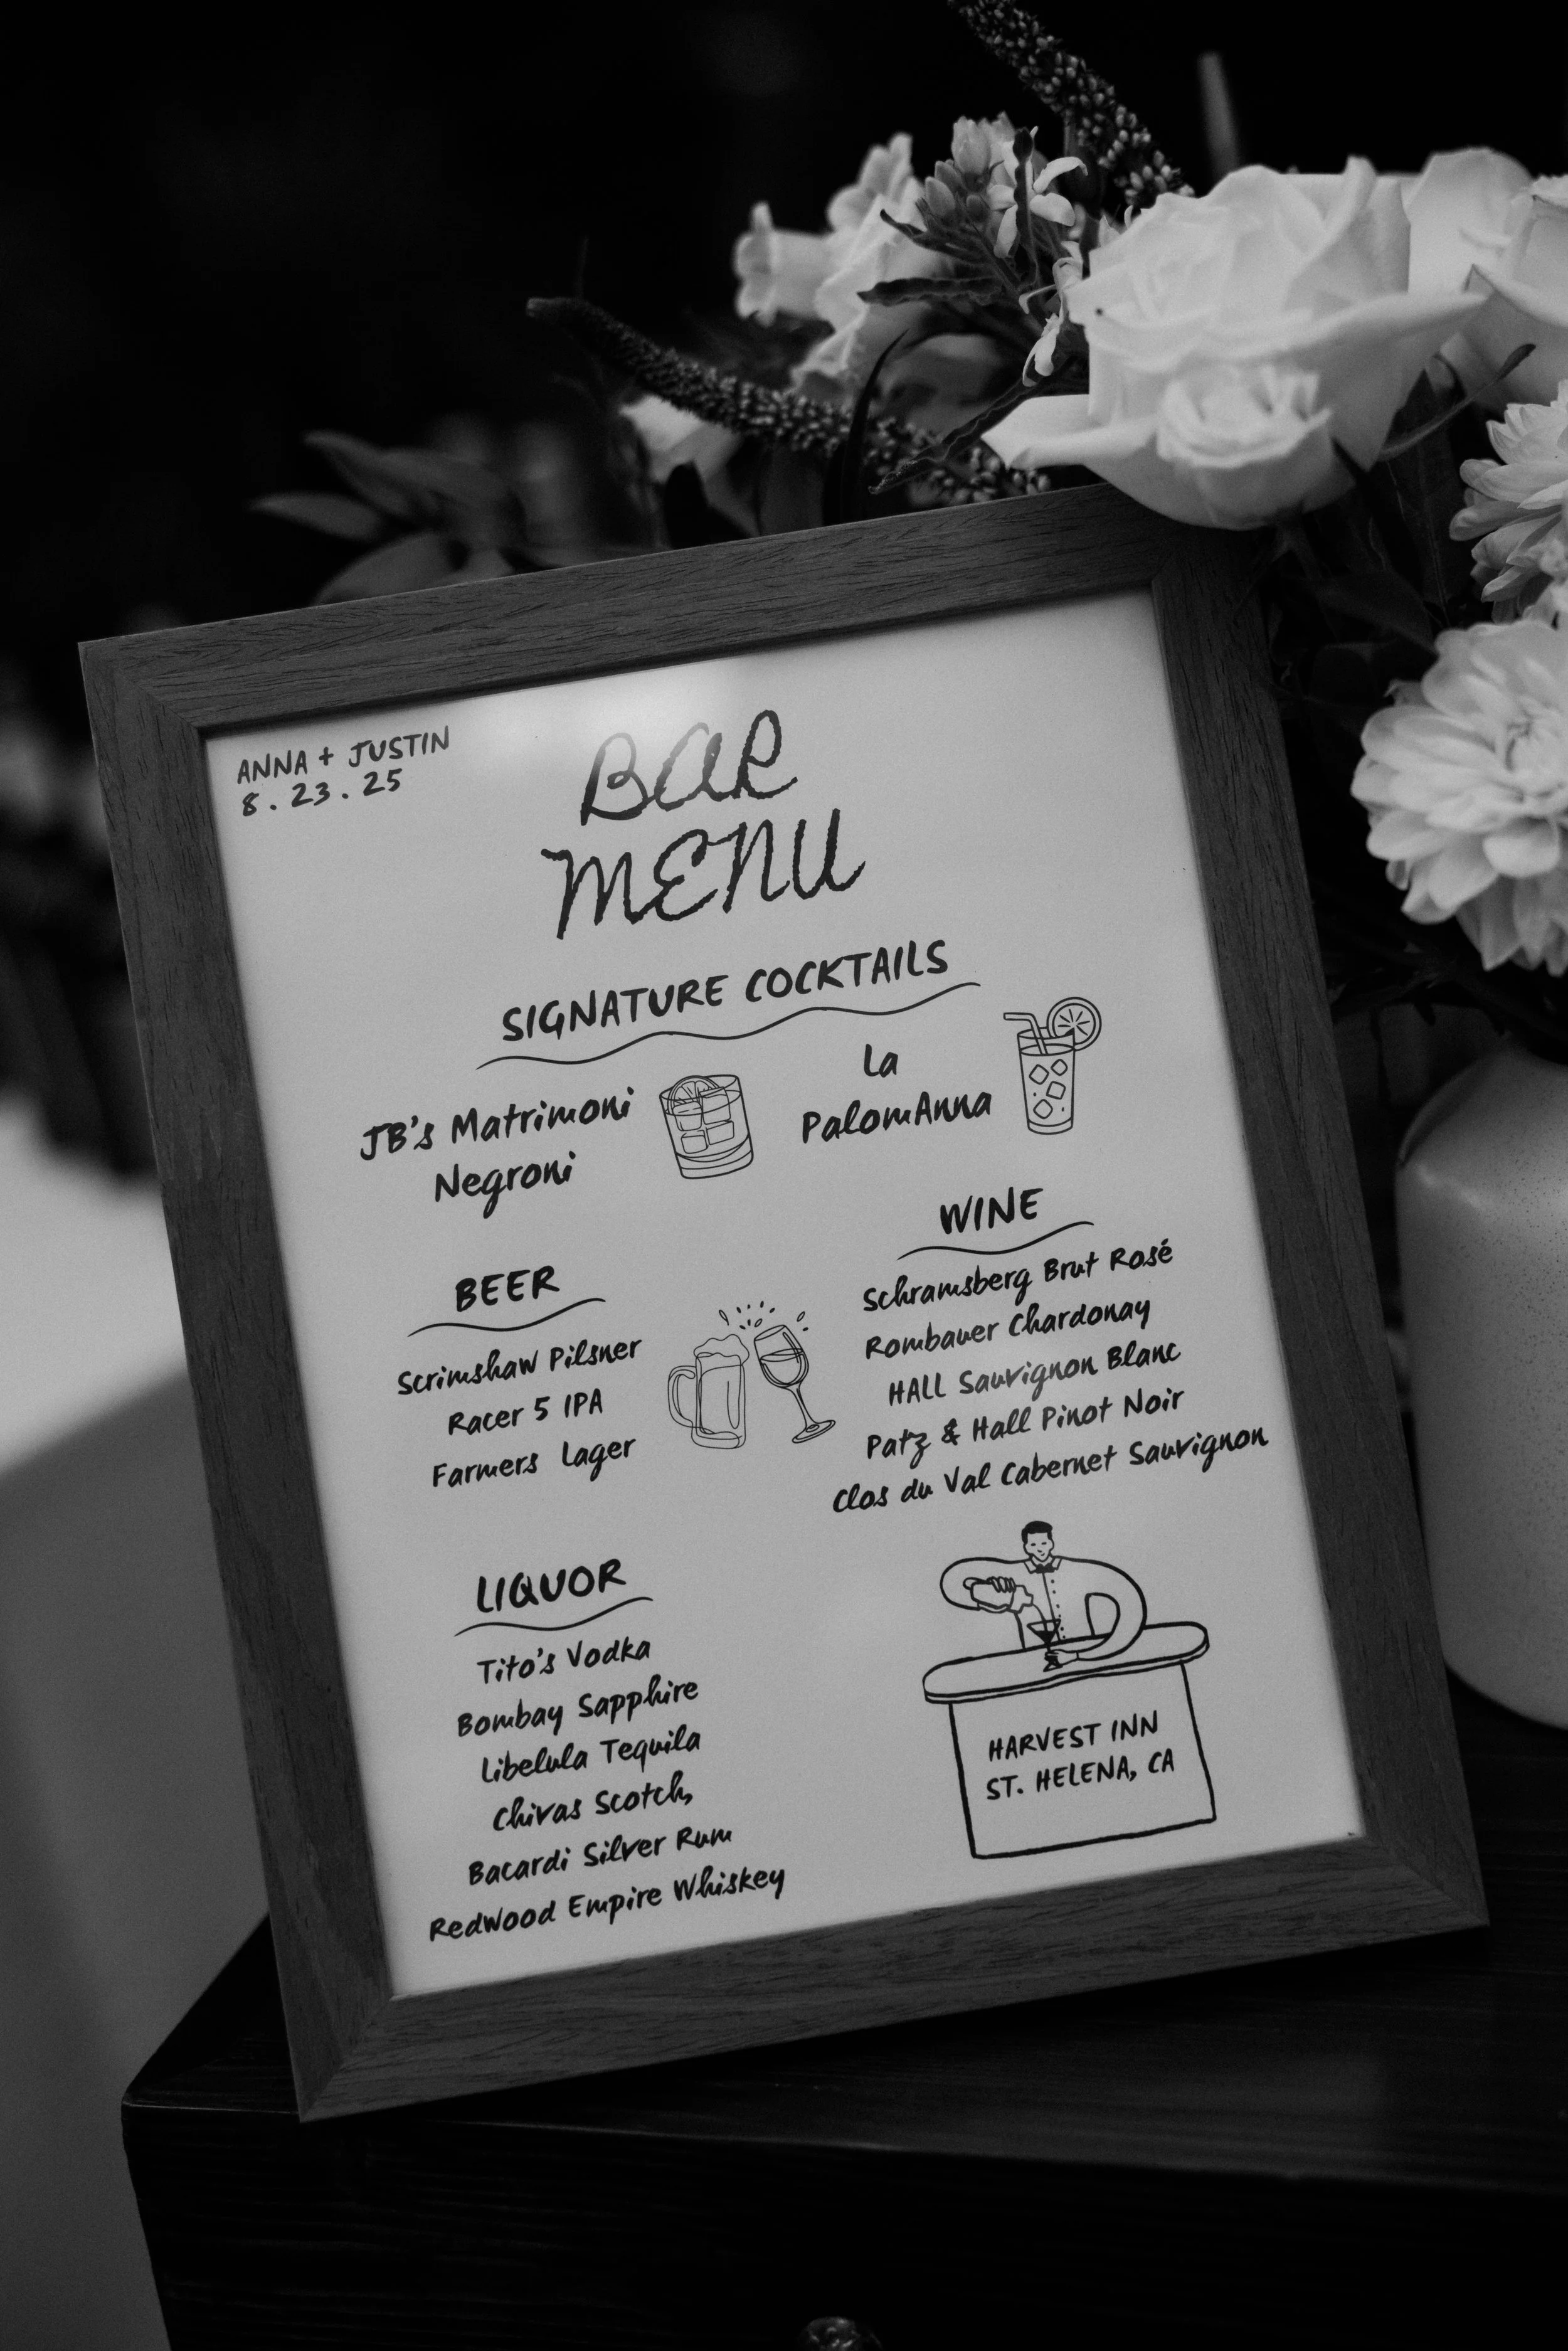 ANNA + JUSTIN
8.23.25
BAR
MENU
SIGNATURE COCKTAILS
JB's Matrimoni
Negroni
La
PalomAnna
BEER
Scrimshaw Pilsner
Racer 5 IPA
Farmers Lager
WINE
Schramsberg Brut Rosé
Rombauer Chardonay
HALL Sauvignon Blanc
Patz & Hall Pinot Noir
Clos du Val Cabernet Sauvignon
LIQUOR
Tito's Vodka
Bombay Sapphire
Libelula Tequila
Chivas Scotch,
Bacardi Silver Rum
Redwood Empire Whiskey
HARVEST INN
ST. HELENA, CA